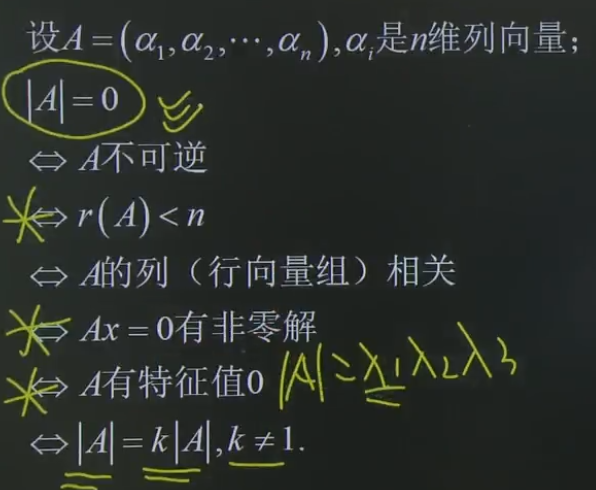 设A=(α₁,α₂,⋯,αₙ),αᵢ是n维列向量；
|A|=0
⇔ A不可逆
⇔ r(A)<n
⇔ A的列（行向量组）相关
⇔ Ax=0有非零解
⇔ A有特征值0 |A|=λ1λ2λ3
⇔|A|=k|A|,k≠1.